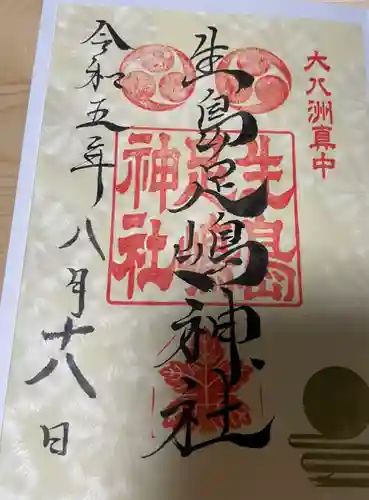 大八洲真中
生島足嶋神社
生島足嶋神社
令和五年八月十八日